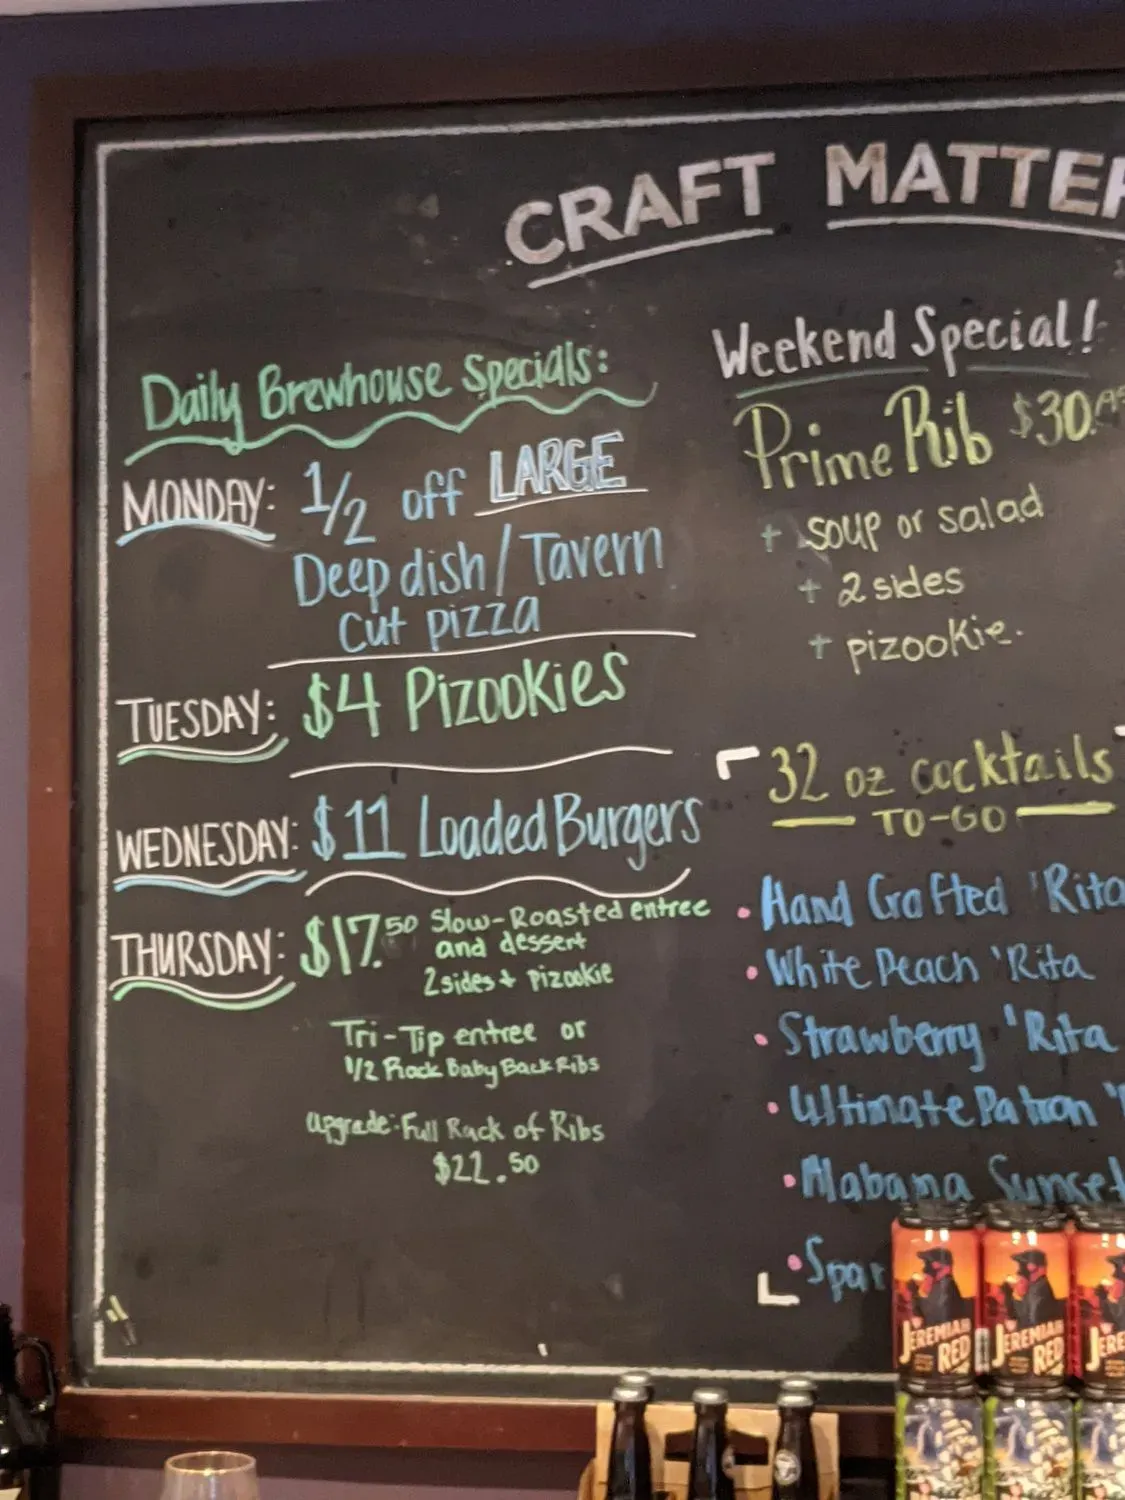 CRAFT MATTER
Daily Brewhouse Specials:
MONDAY: 1/2 off LARGE
Deep dish/Tavern
Cut pizza
TUESDAY: $4 Pizookies
WEDNESDAY: $11 Loaded Burgers
THURSDAY: $17.50 Slow-Roasted entree
and dessert
2 sides + pizookie
Tri-Tip entree or
1/2 Rack Baby Back Ribs
Upgrade: Full Rack of Ribs
$22.50
Weekend Special!
Prime Rib $30.
+ soup or salad
+ 2 sides
+ pizookie.
32 oz cocktails
TO-GO
• Hand Crafted 'Rita
• White Peach 'Rita
• Strawberry 'Rita
• Ultimate Patron '
• Alabama Sunset
• Spar
JEREMIAH
RED
JEREMIAH
RED
JERE
RE